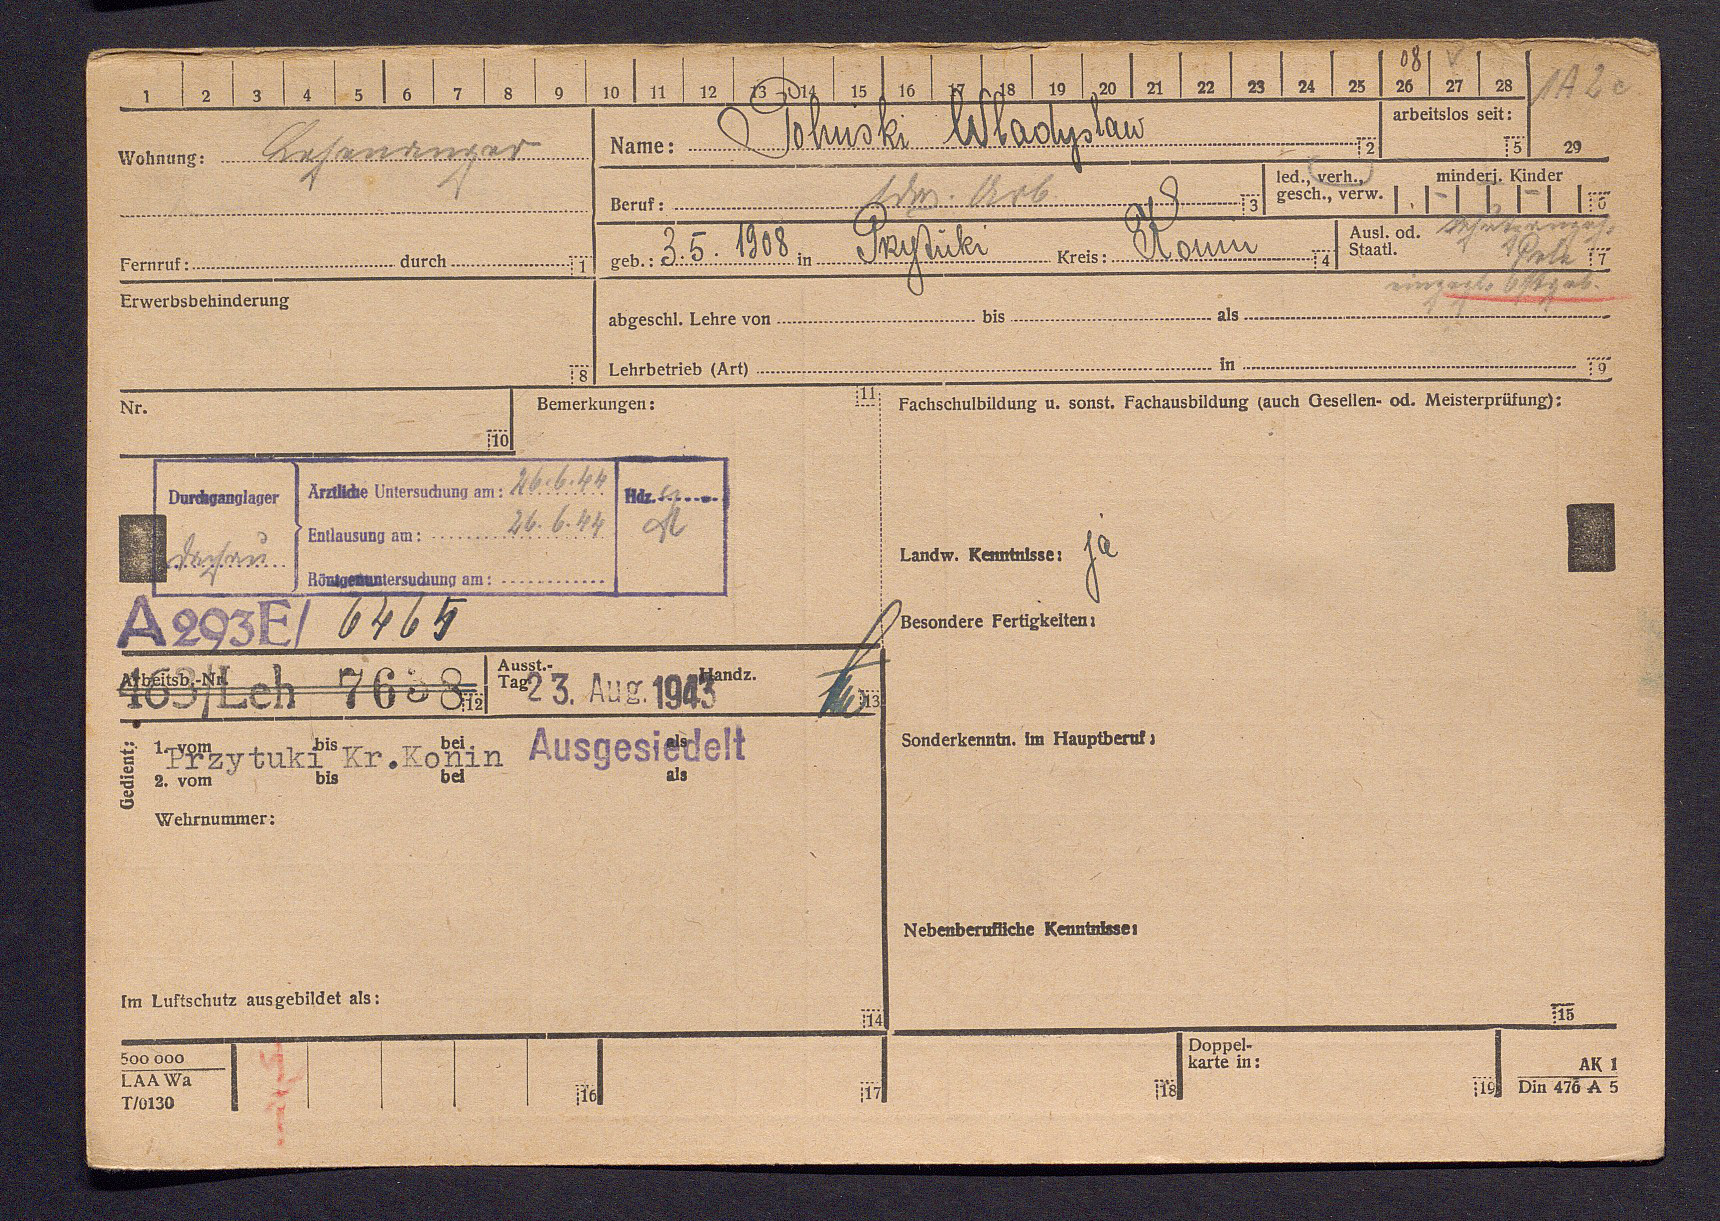 1 2 3 4 5 6 7 8 9 10 11 12 13 14 15 16 17 18 19 20 21 22 23 24 25 26 27 28
08
1A2c
Wohnung:
Name: Wladyslaw 2
arbeitslos seit: 5
29
Beruf: ldw. Arb. 3
led., verh.,
gesch., verw.
minderj. Kinder
6
Fernruf: durch 1
geb.: 3.5. 1908 in Kreis: Konin 4
Ausl. od.
Staatl.
7
Erwerbsbehinderung
8
abgeschl. Lehre von bis als
Lehrbetrieb (Art) in 9
Nr.
10
Bemerkungen: 11
Fachschulbildung u. sonst. Fachausbildung (auch Gesellen- od. Meisterprüfung):
Durchganglager
Dachau
Ärztliche Untersuchung am: 26.6.44
Entlausung am: 26.6.44
Röntgenuntersuchung am:
Hdz.
Landw. Kenntnisse: ja
A 293E/ 6465
Besondere Fertigkeiten:
Arbeitsb.-Nr.
463/Leh 7638 12
Ausst.-
Tag 23. Aug. 1943
Handz.
13
Sonderkenntn. im Hauptberuf:
Gedient:
1. vom bis bei als
Przytuki Kr.Konin Ausgesiedelt
2. vom bis bei als
Wehrnummer:
Nebenberufliche Kenntnisse:
Im Luftschutz ausgebildet als:
14
15
500 000
LAA Wa
T/0130
16
17
18
Doppel-
karte in:
19
AK 1
Din 476 A 5